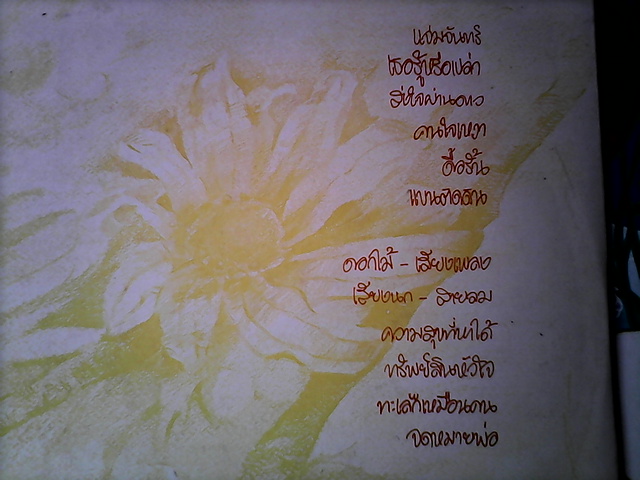 แจ่มจันทร์
เธอรู้หรือเปล่า
สื่อใจผ่านดาว
คนใจเหงา
ดื้อรั้น
ดอกไม้ - เสียงเพลง
เสียงนก - สายลม
ความสุขที่หาได้
ทรัพย์สินหัวใจ
ทะเลก็เหมือนคน
จดหมายพ่อ